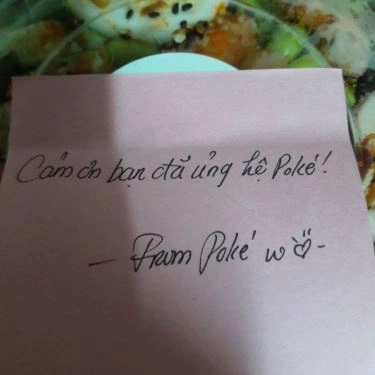 Cảm ơn bạn đã ủng hệ Poké!
- From Poké w -